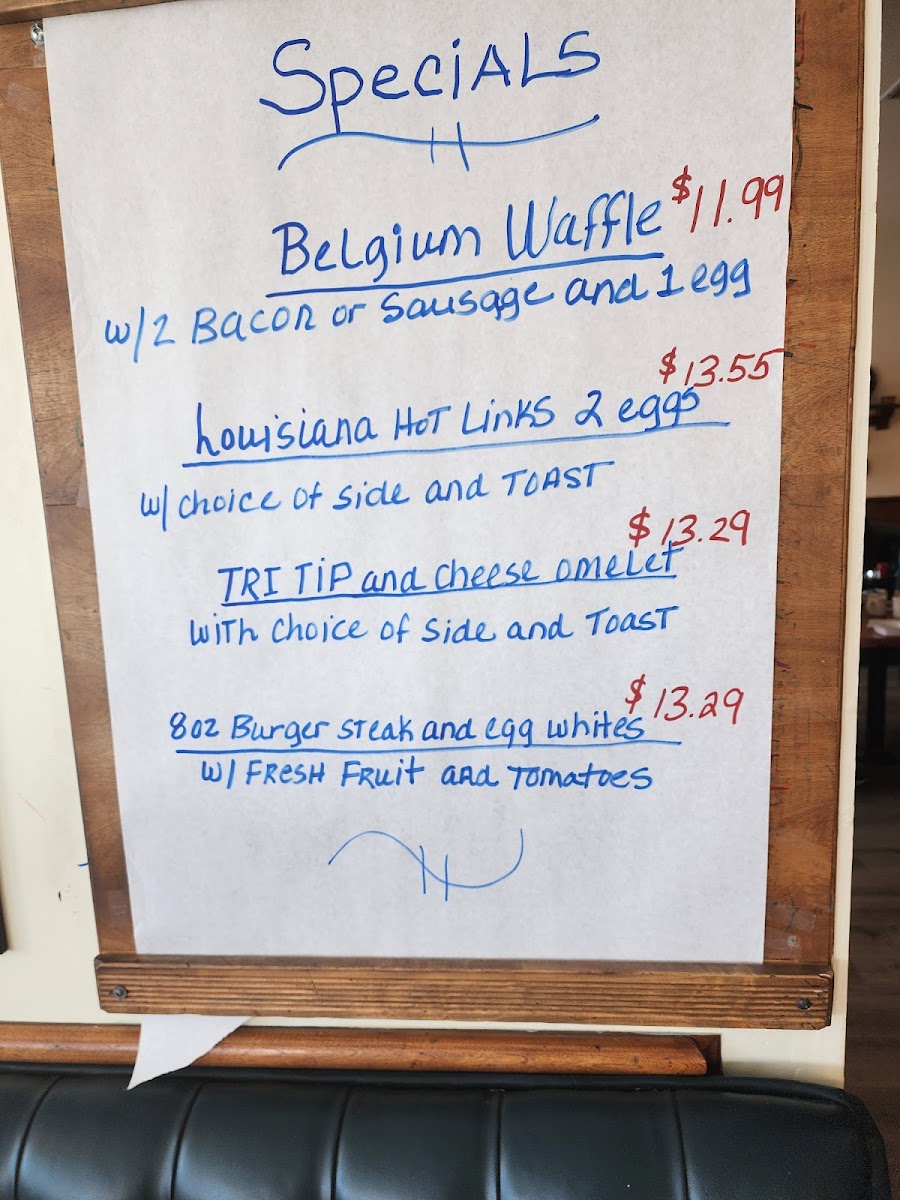 SpeciALS
Belgium Waffle $11.99
w/2 Bacon or Sausage and 1 egg
$13.55
Louisiana HoT LinKS 2 eggs
w/ choice of side and TOAST
$13.29
TRI TiP and cheese omelet
WiTh choice of side and ToasT
$13.29
8oz Burger steak and egg whites
w/ FResH FRuit and Tomatoes